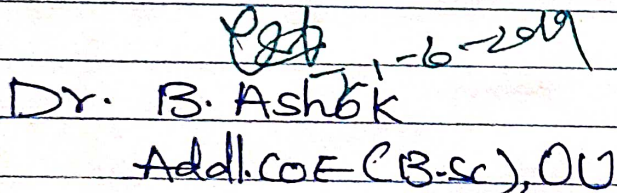 1-6-2019
Dr. B. Ashok
Addl. COE (B.Sc), OU